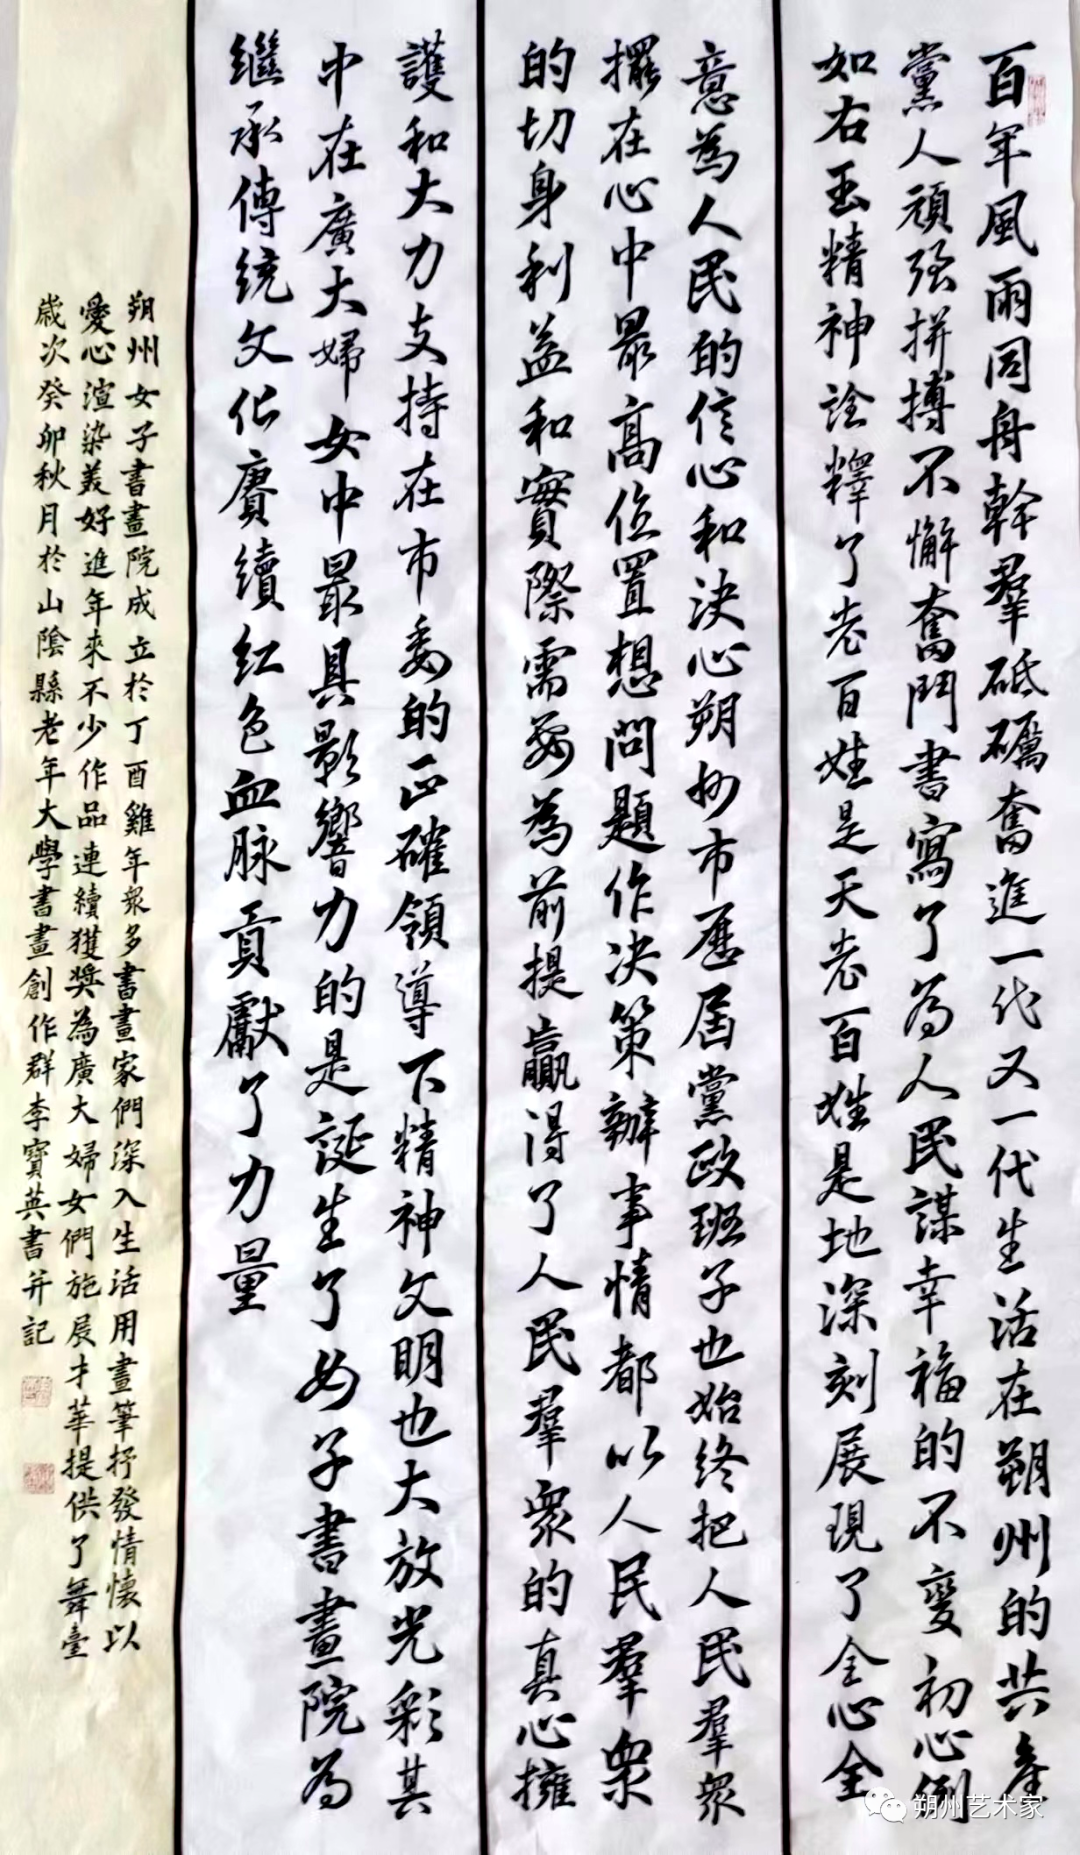 百年風雨同舟幹羣砥礪奮進一代又一代生活在朔州的共產
黨人頑强拼搏不懈奮鬥書寫了為人民謀幸福的不變初心例
如右玉精神詮釋了老百姓是天老百姓是地深刻展現了全心全
意為人民的信心和決心朔州市歷屆黨政班子也始終把人民羣衆
擺在心中最高位置想問題作决策辦事情都以人民羣衆
的切身利益和實際需要為前提贏得了人民羣衆的真心擁
護和大力支持在市委的正確領導下精神文明也大放光彩其
中在廣大婦女中最具影響力的是誕生了女子書畫院為
繼承傳統文化賡續紅色血脉貢獻了力量
朔州女子書畫院成立於丁酉雞年衆多書畫家們深入生活用畫筆抒發情懷以
愛心渲染美好進年來不少作品連續獲獎為廣大婦女們施展才華提供了舞臺
歲次癸卯秋月於山陰縣老年大學書畫創作群李寶英書并記
朔州艺术家